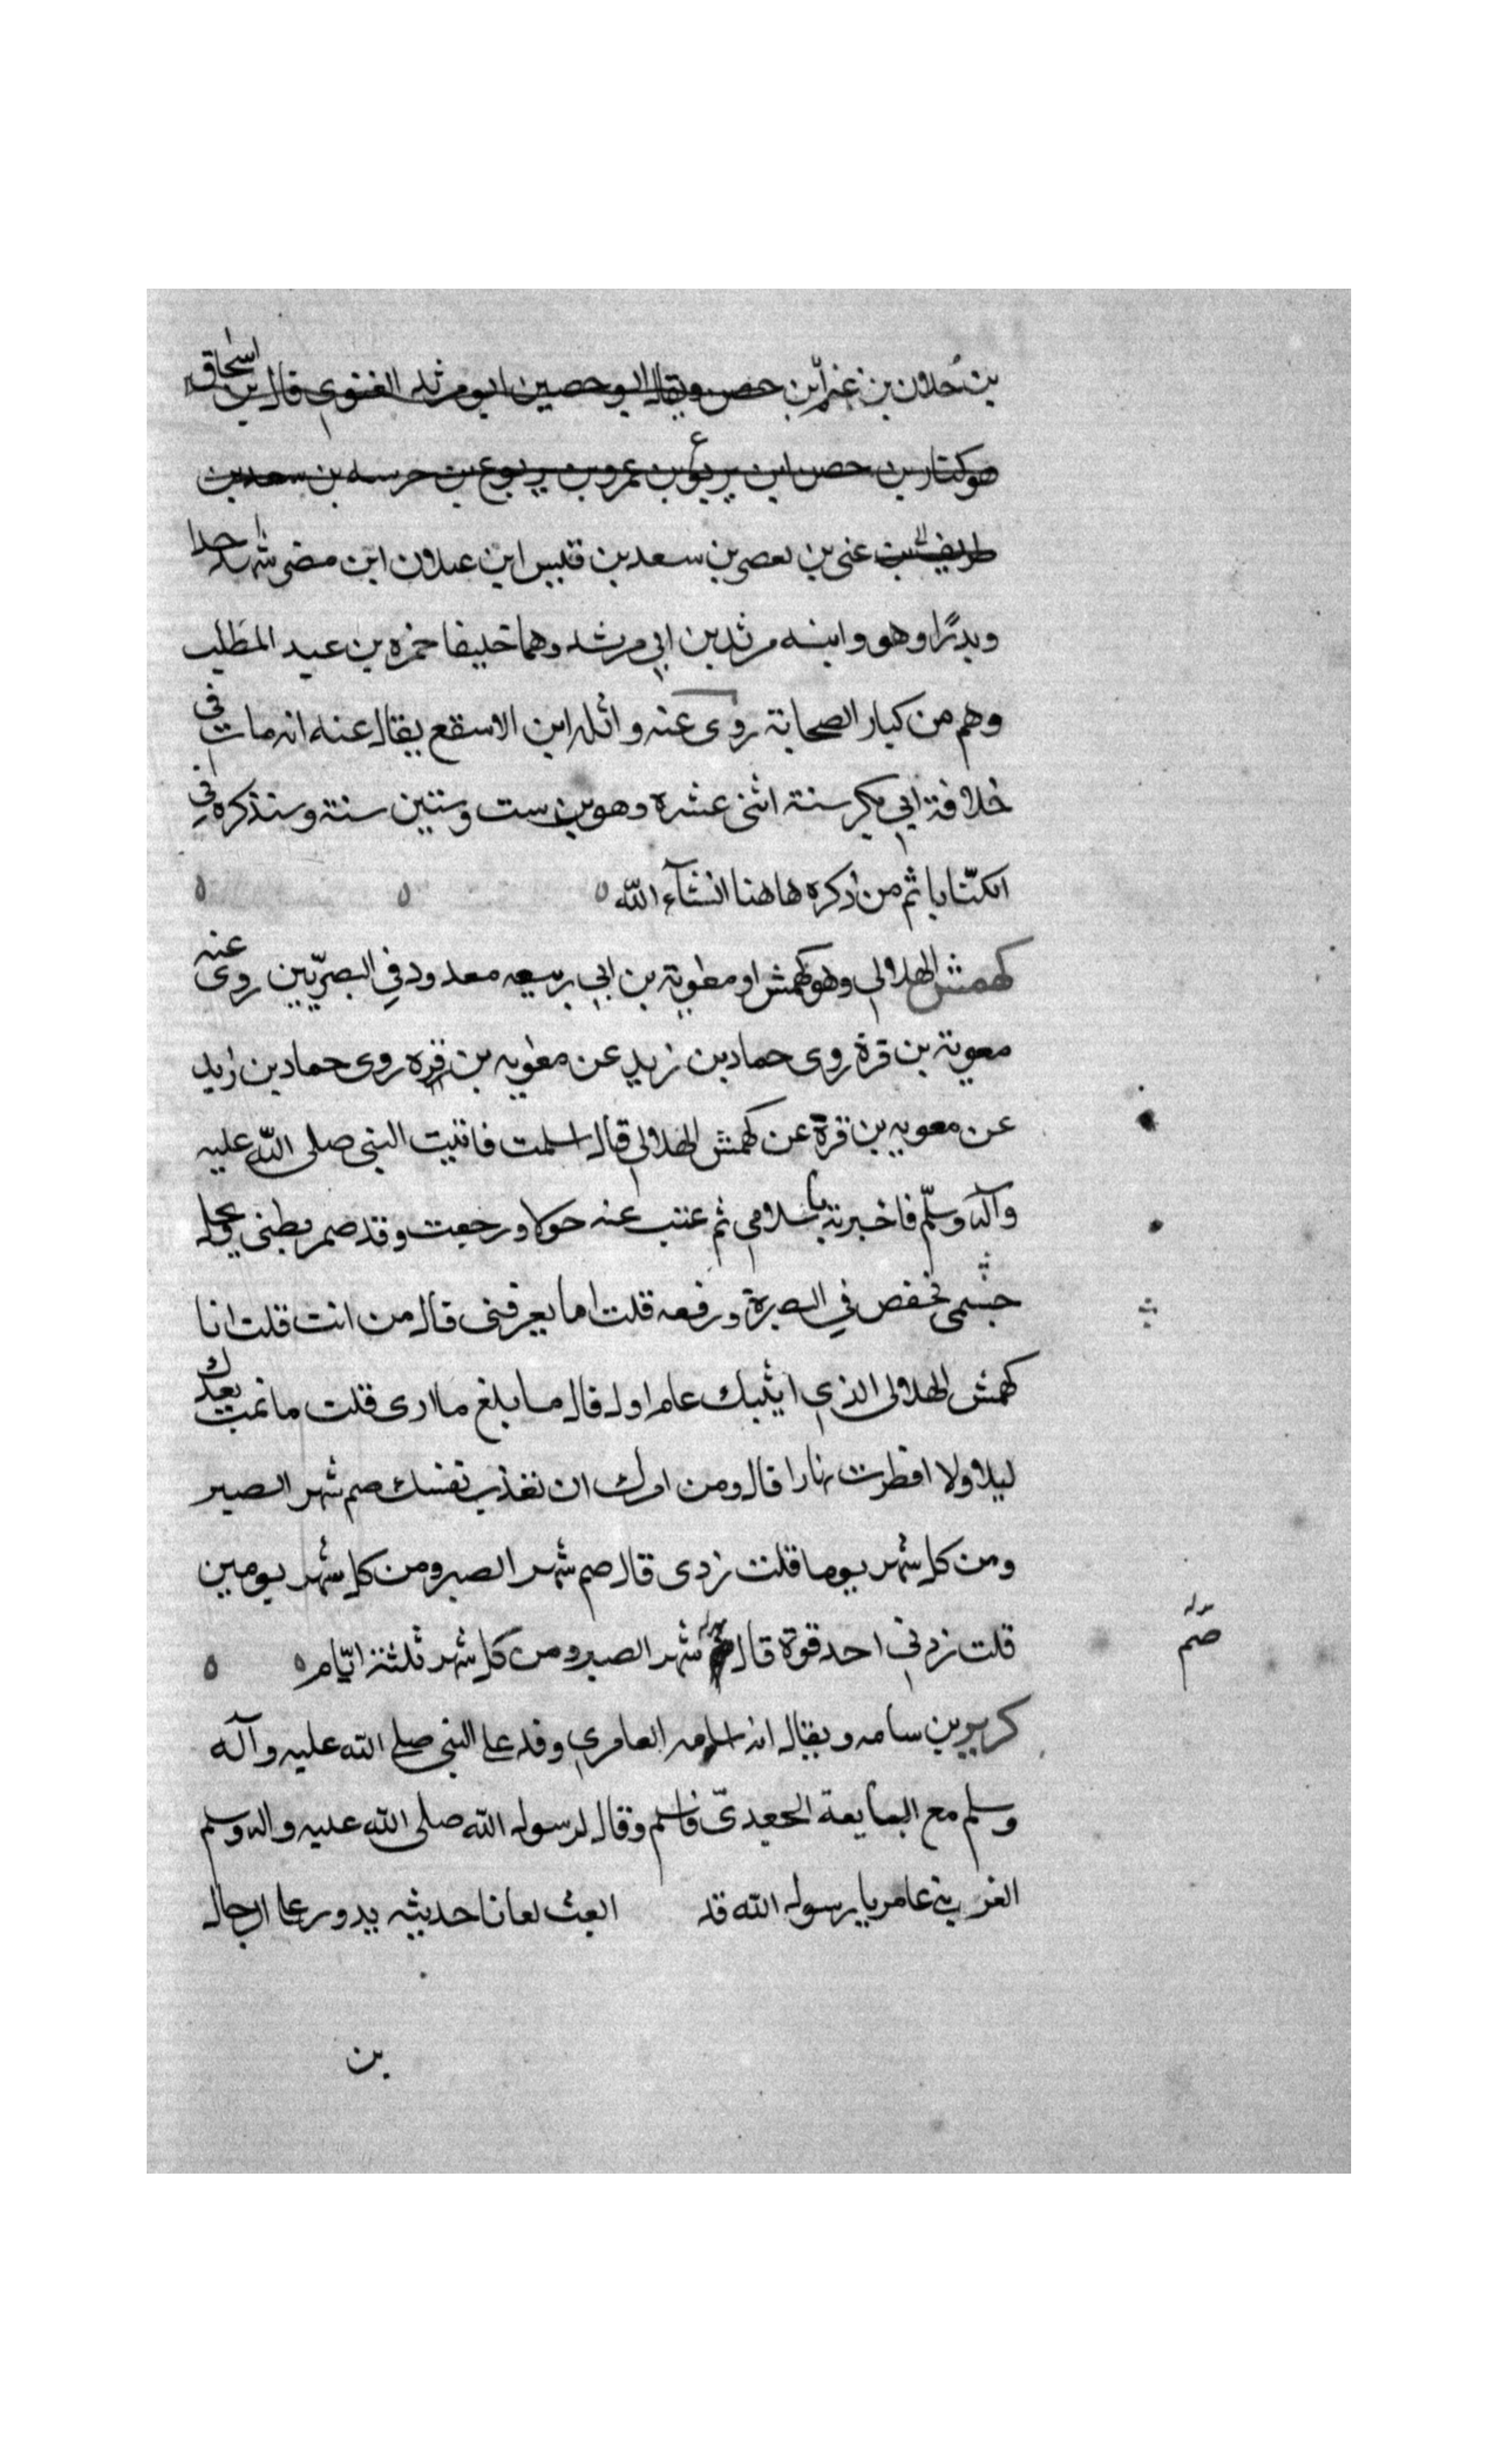 بن حلان بن غنم ابن حصن ويقال ابو حصين ابو مرثد الغنوي قال بن اسحاق
هو كناز بن حصن ابن يربوع بن عمرو بن يربوع بن خرسه بن سعد بن
طريف بن غنى بن يعصر بن سعد بن قيس ابن عيلان ابن مضر شهد احدا
وبدرًا وهو وابنه مرثد بن ابي مرشد وهما حليفا حمزه بن عبد المطلب
وهم من كبار الصحابة روى عنه واثله ابن الاسقع يقال عنه انه مات في
خلافة ابي بكر سنة اثنى عشره وهو بن ست وستين سنة وسنذكره في
الكنا باثم من ذكره هاهنا انشآء الله
كهمش الهلالي وهو كهمش او معوية بن ابي ربيعه معدود في البصريين روى عنه
معوية بن قرة روى حماد بن زيد عن معويه بن قره روى حماد بن زايد
عن معويه بن قرة عن كهمش الهلالي قال اسلمت فاتيت النبى صلى الله عليه
وآله وسلم فاخبرته باسلامي ثم غبت عنه حولا ورجعت وقد ضمر بطنى ونحل
جسمى فخفض في البصرة ورفعه قلت اما يعرفنى قال من انت قلت انا
كهمش الهلالى الذي اتيتك عام اول قال ما بلغ ما ارى قلت ما نمت بعدك
ليلا ولا افطرت نهارا قال ومن امرك ان تعذب نفسك صم شهر الصبر
ومن كل شهر يوما قلت زدى قال صم شهر الصبر ومن كل شهر يومين
قلت زدني اجد قوة قال شهر الصبر ومن كل شهر ثلثة ايام
صم
كريز بن سامه ويقال ابن اسامه العامري وفد على النبى صلى الله عليه وآله
وسلم مع النابغة الجعدىّ فاسلم وقال لرسول الله صلى الله عليه واله وسلم
العن بنى عامر يا رسول الله قد لم ابعث لعانا حديثه يدور على الرجال
بن